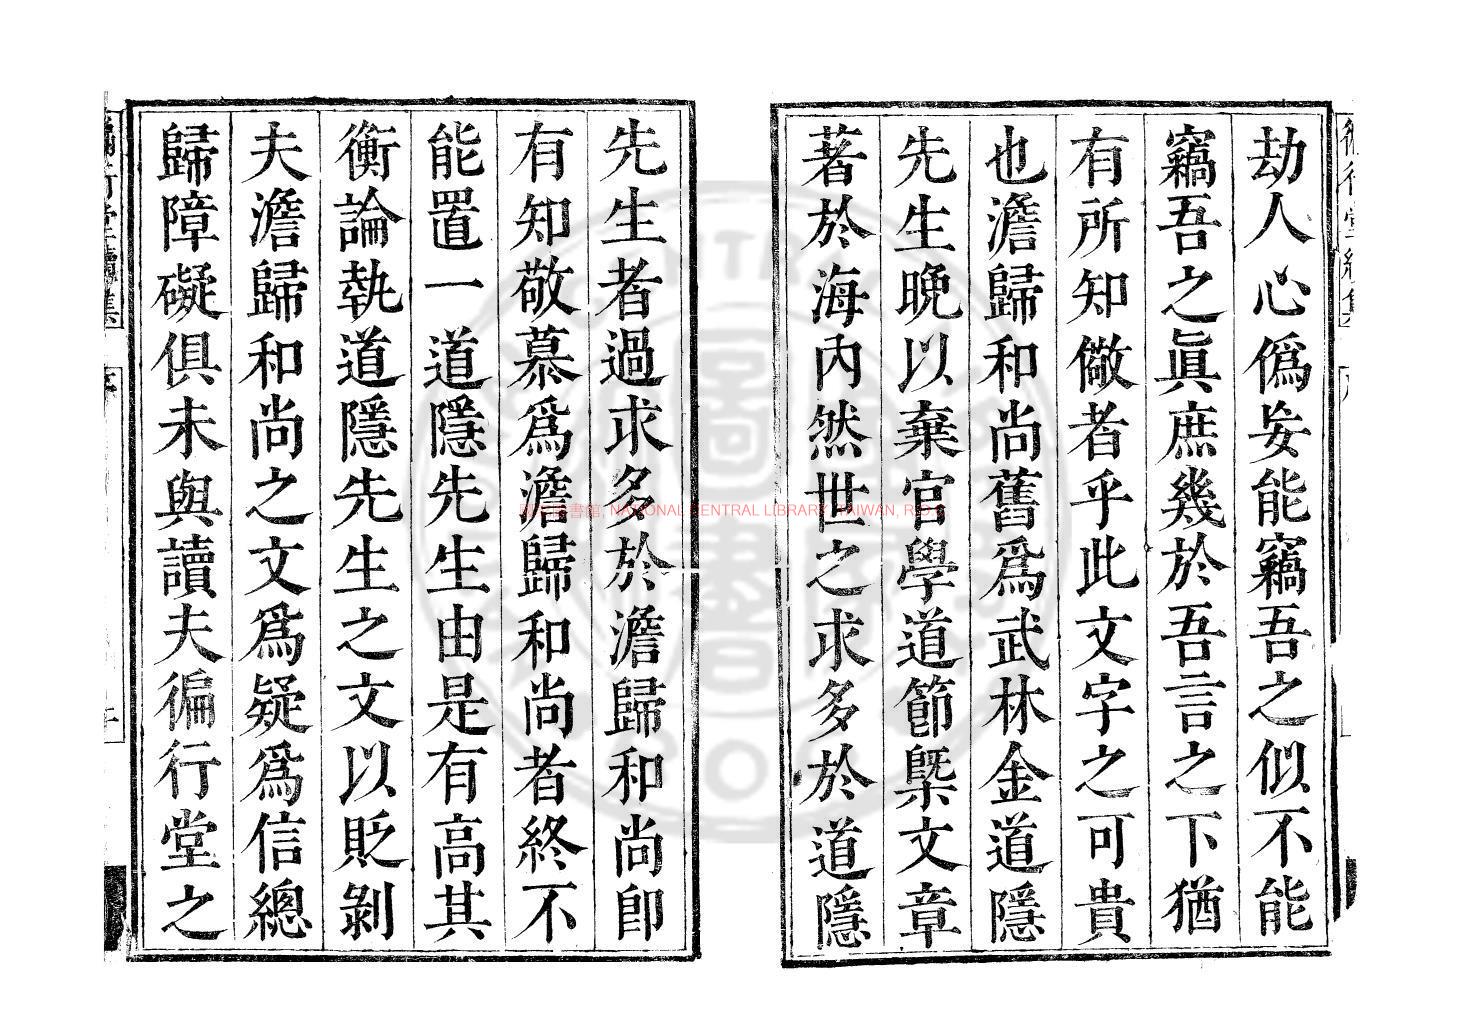 劫人心僞妄能竊吾之似不能
竊吾之眞庶幾於吾言之下猶
有所知儆者乎此文字之可貴
也澹歸和尚舊爲武林金道隱
先生晚以棄官學道節槩文章
著於海內然世之求多於道隱
先生者過求多於澹歸和尚卽
有知敬慕爲澹歸和尚者終不
能置一道隱先生由是有高其
衡論執道隱先生之文以貶剝
夫澹歸和尚之文爲疑爲信總
歸障礙俱未與讀夫徧行堂之
國家圖書館, NATIONAL CENTRAL LIBRARY, TAIWAN, R.O.C